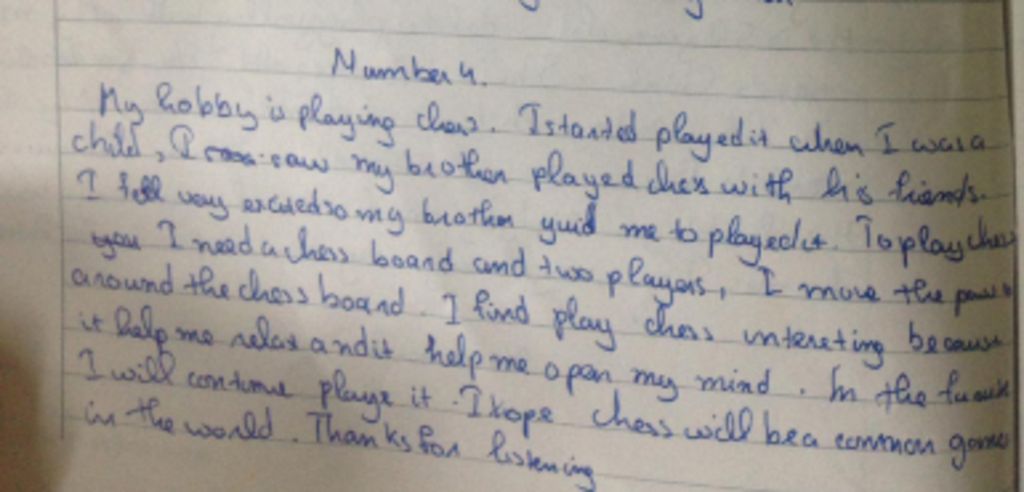 Number 4.
My hobby is playing chess. I started played it when I was a
child, I saw my brother played chess with his friends.
I fell very excited so my brother guid me to played it. To play chess
you I need a chess board and two players, I move the
around the chess board. I find play chess intereting because
it help me relax and it help me open my mind. In the
I will continue playe it. I hope chess will be a common game
in the world. Thanks for listening